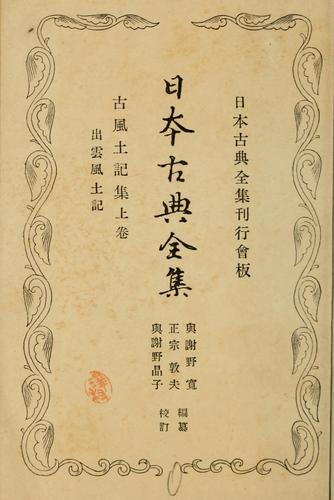 日本古典全集刊行會板
日本古典全集
與謝野寬
正宗敦夫
與謝野晶子
編纂
校訂
古風土記集上卷
出雲風土記